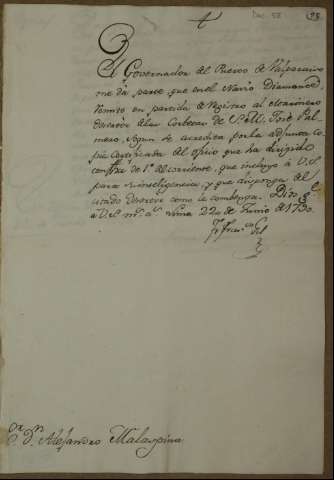 Doc. 58
El Governador del Puerto de Valparaiso
me da parte que en el Navio Diamante,
remite en partida de registro al
desertor de las Corbetas de S. M. José Pal-
mero, segun se acredita por la adjunta co-
pia certificada del oficio que ha dirigido
con fha de 1º del corriente, que incluyo a V.S.
para su inteligencia, y que disponga del
citado desertor como le combenga. Dios
a V.S. mˢ aˢ Lima 22 de Junio de 1790.
Sr. Dn. Alejandro Malaspina